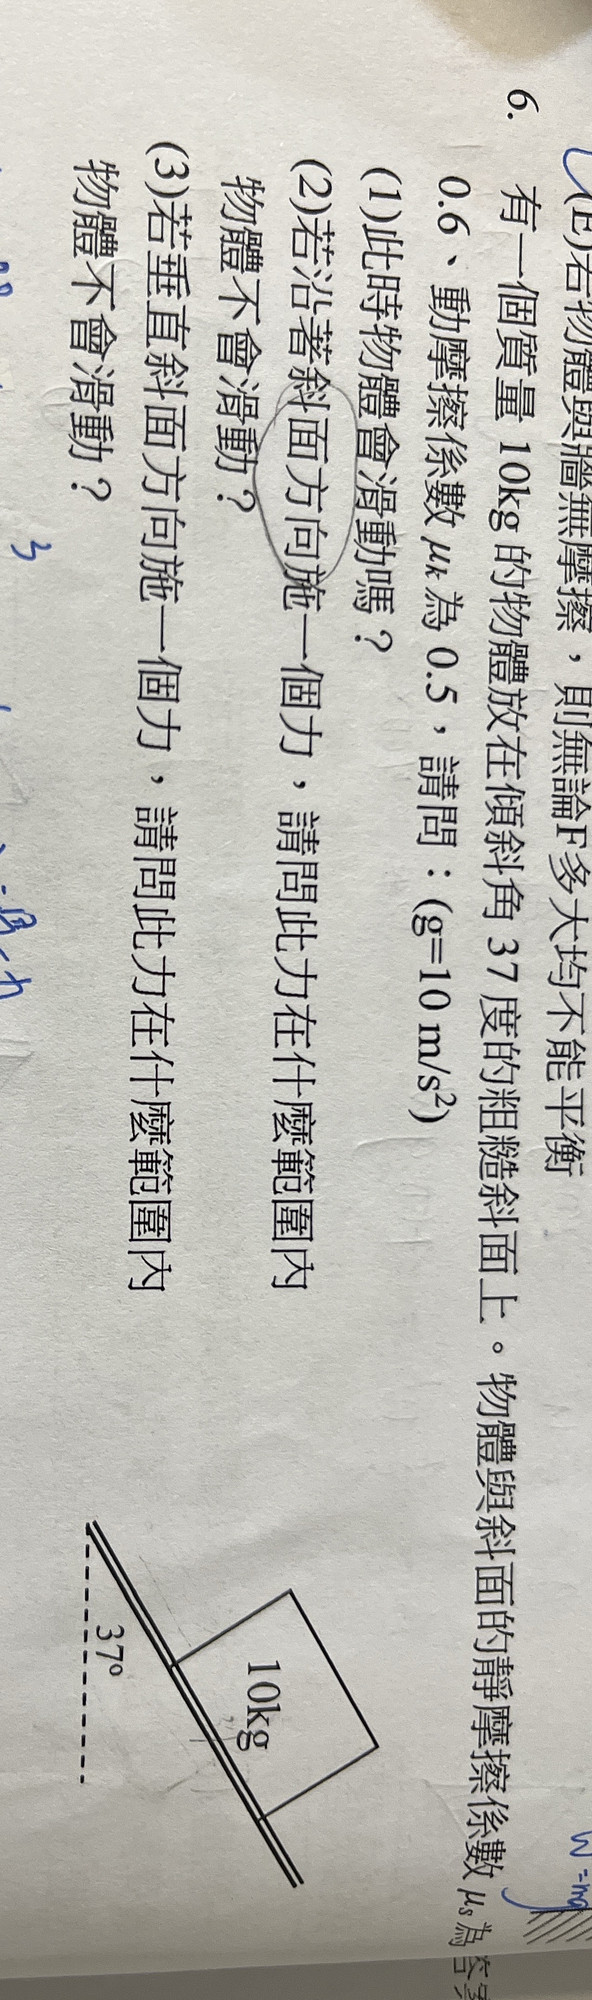 (E)若物體與牆無摩擦，則無論F多大均不能平衡
6. 有一個質量 10kg 的物體放在傾斜角 37 度的粗糙斜面上。物體與斜面的靜摩擦係數 μs 為
0.6、動摩擦係數 μk 為 0.5，請問：(g=10 m/s²)
(1)此時物體會滑動嗎？
(2)若沿著斜面方向施一個力，請問此力在什麼範圍內
物體不會滑動？
(3)若垂直斜面方向施一個力，請問此力在什麼範圍內
物體不會滑動？
10kg
37°
W=mg
3